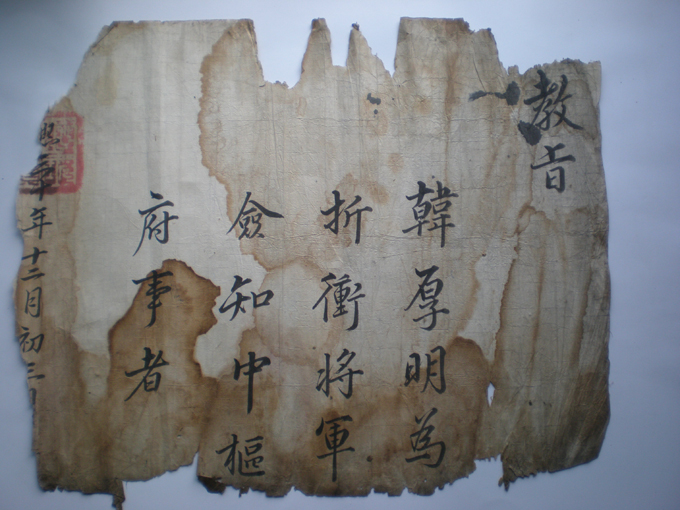 教旨
韓厚明為
折衝將軍
僉知中樞
府事者
十年十二月初三日